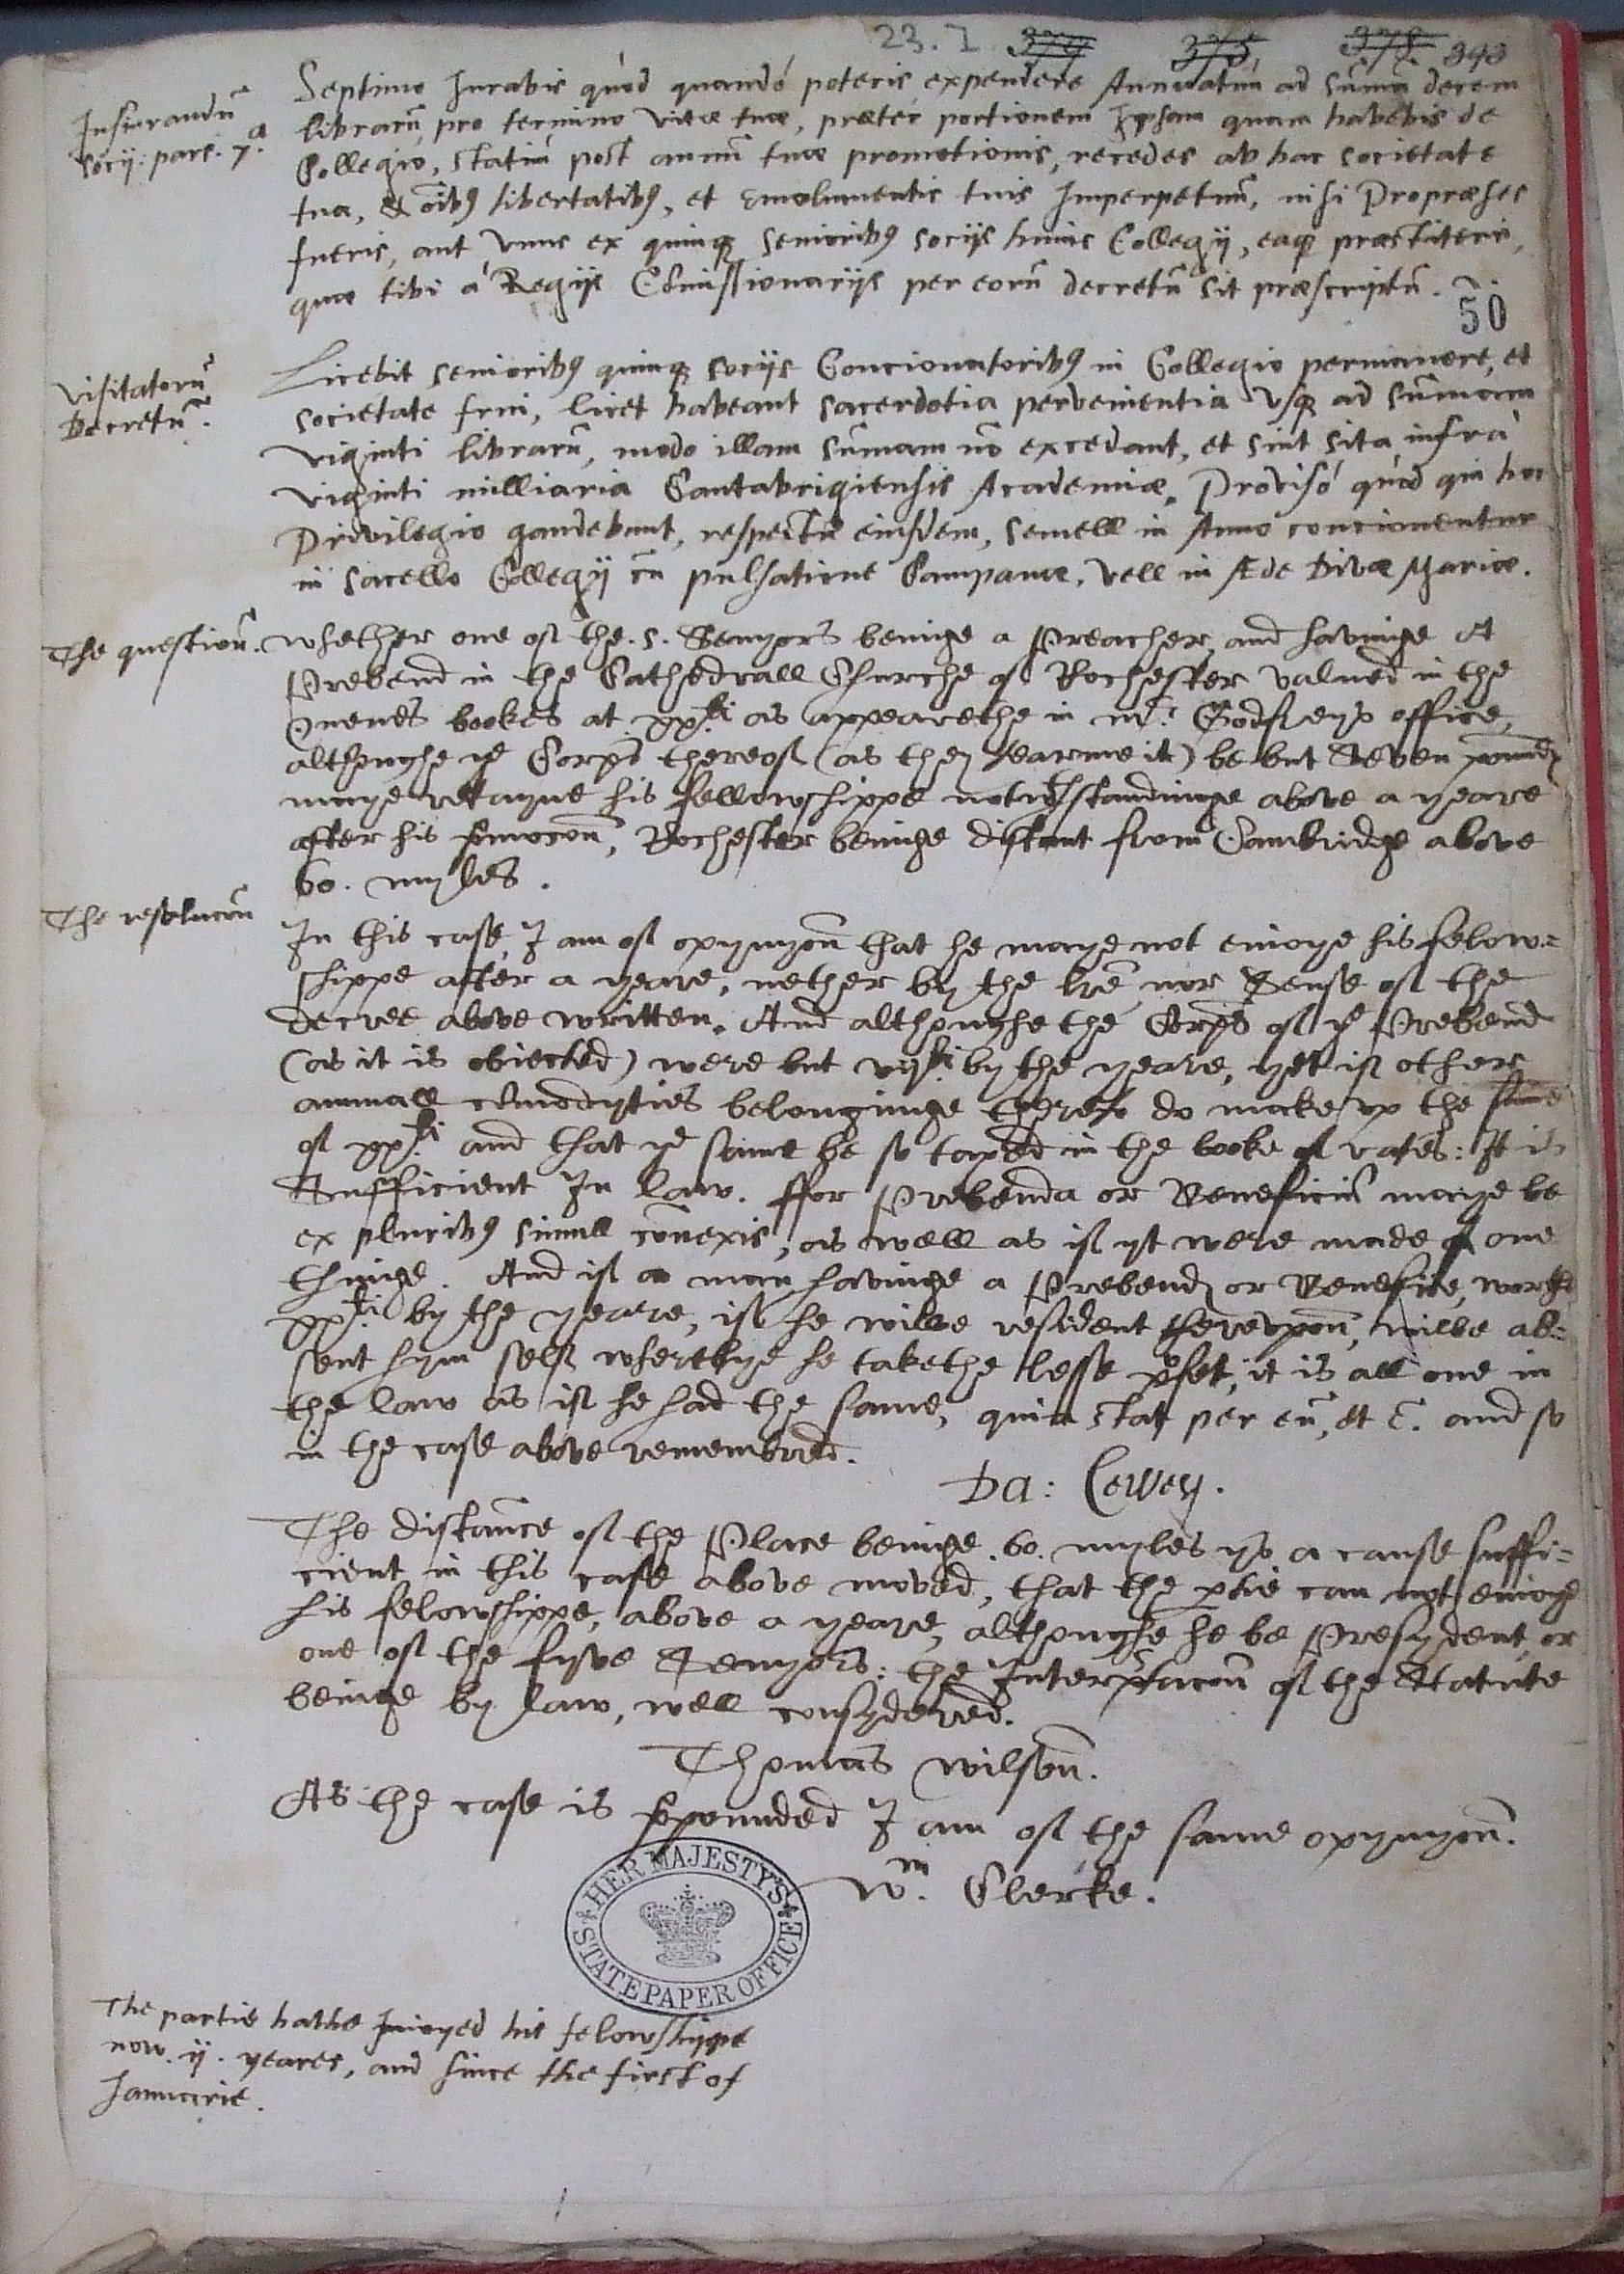 23. I 379 375, 378 393
Iusiurandū
Socij: pars. 7.a
Septimo Iurabis quòd quandó poteris expendere Annuatim ad sūmā decem
librarū, pro termino vitæ tuæ, præter portionem Ipsam quam habebis de
Collegio, statim post annū tuæ promotionis, recedes ab hac societate
tua, & oībꝰ libertatibꝰ, et emolumentis tuis Imperpetuū, nisi Propræses
fueris, aut vnus ex quinqꝫ senioribꝰ socijs huius Collegij, eaqꝫ præstiteris,
quæ tibi à Regijs Cōmissionarijs per eorū decretū sit præscriptū.
50
Visitatorū
Decretū.
Licebit senioribꝰ quinqꝫ socijs Concionatoribꝰ in Collegio permanere, et
societate frui, licet habeant sacerdotia pervenientia vsqꝫ ad sūmam
viginti librarū, modo illam sūmam nō excedant, et sint sita infrà
viginti milliaria Cantabrigiensis Academiæ. Provisó quòd qui hoc
Privilegio gaudebunt, respectu eiusdem, semell in Anno concionentur
in sacello Collegij cū pulsatione Campanæ, vell in Æde Divæ Mariæ.
The questioñ.
whether one of the .5. Senyors beinge a Preacher, and havinge A
Prebend in the Cathedrall Churche of Rochester valued in the
Quenes bookes at xx.li as appearethe in mr. Godfreys office,
althoughe ye Corps thereof (as they tearme it) be but Seven pounds
maye retayne his fellowshippe notwthstandinge above a yeare
after his p̱mocoñ, Rochester beinge distant from Cambridge above
60. myles.
The resolucoñ
In this case, I am of opynyoñ that he maye not enioye his felow=
shippe after a yeare, nether by the lr̃e nor Sense of the
decree above written. And althoughe the Corps of ye Prebend
(as it is obiected) were but vij.li by the yeare, yet if other
annuall cōmodyties belonginge therto do make vp the sūme
of xx.li and that ye same be so taxed in the booke of rates: It is
Sufficient In law. ffor Prebenda or Beneficiū maye be
ex pluribꝰ simull cōnexis, as well as if yt were made of one
thinge. And if a man havinge a Prebend or Benefice, worth
xx.li by the yeare, if he wilbe resident therevpoñ, wilbe ab=
sent hym self wherebye he takethe lesse p̱fet, it is all one in
the law as if he had the same, quia stat per eū, et c̃. and so
in the case above remembred.
Da: Lewes.
The distaūce of the Place beinge .60. myles ys a cause suffi=
cient in this case above moved, that the p̱tie can not enioye
his felowshippe, above a yeare, althoughe he be Presydent, or
one of the fyve Senyors: the Interp̱tacoñ of the Statute
beinge by law, well consydered.
Thomas Wilsoñ.
As the case is p̱pounded I am of the same opynyoñ.
Wm. Clerke.
HER MAJESTY'S
STATE PAPER OFFICE
The partie hathe Inioyed his felowshippe
now .ij. yeares, and since the first of
Januarie.